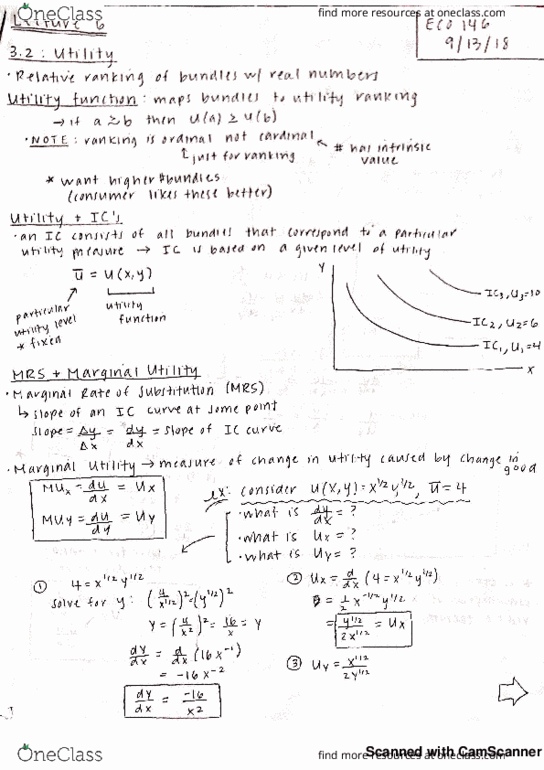 OneClass
find more resources at oneclass.com
Lecture 6
ECO 146
9/13/18
3.2: Utility
· Relative ranking of bundles w/ real numbers
Utility function: maps bundles to utility ranking
→ if a ≥ b then u(a) ≥ u(b)
· NOTE: ranking is ordinal not cardinal
just for ranking
# has intrinsic value
* want higher # bundles
(consumer likes these better)
Utility + IC's
· an IC consists of all bundles that correspond to a particular
utility measure → IC is based on a given level of utility
ū = u(x,y)
particular utility level
* fixed
utility function
Y
IC₃, U₃=10
IC₂, U₂=6
IC₁, U₁=4
X
MRS + Marginal Utility
· Marginal Rate of Substitution (MRS)
↳ slope of an IC curve at some point
slope = Δy/Δx = dy/dx = slope of IC curve
· Marginal Utility → measure of change in utility caused by change in good
MUx = du/dx = Ux
MUy = du/dy = Uy
ex: consider u(x,y) = x^1/2 y^1/2, ū = 4
· what is dy/dx = ?
· what is Ux = ?
· what is Uy = ?
① 4 = x^1/2 y^1/2
solve for y: (4/x^1/2)² = (y^1/2)²
Y = (4/x²)² = 16/x = Y
dy/dx = d/dx (16x^-1)
= -16x^-2
dy/dx = -16/x²
② Ux = d/dx (4 = x^1/2 y^1/2)
= 1/2 x^-1/2 y^1/2
= y^1/2 / 2x^1/2 = Ux
③ Uy = x^1/2 / 2y^1/2
Scanned with CamScanner
OneClass
find more resources at oneclass.com